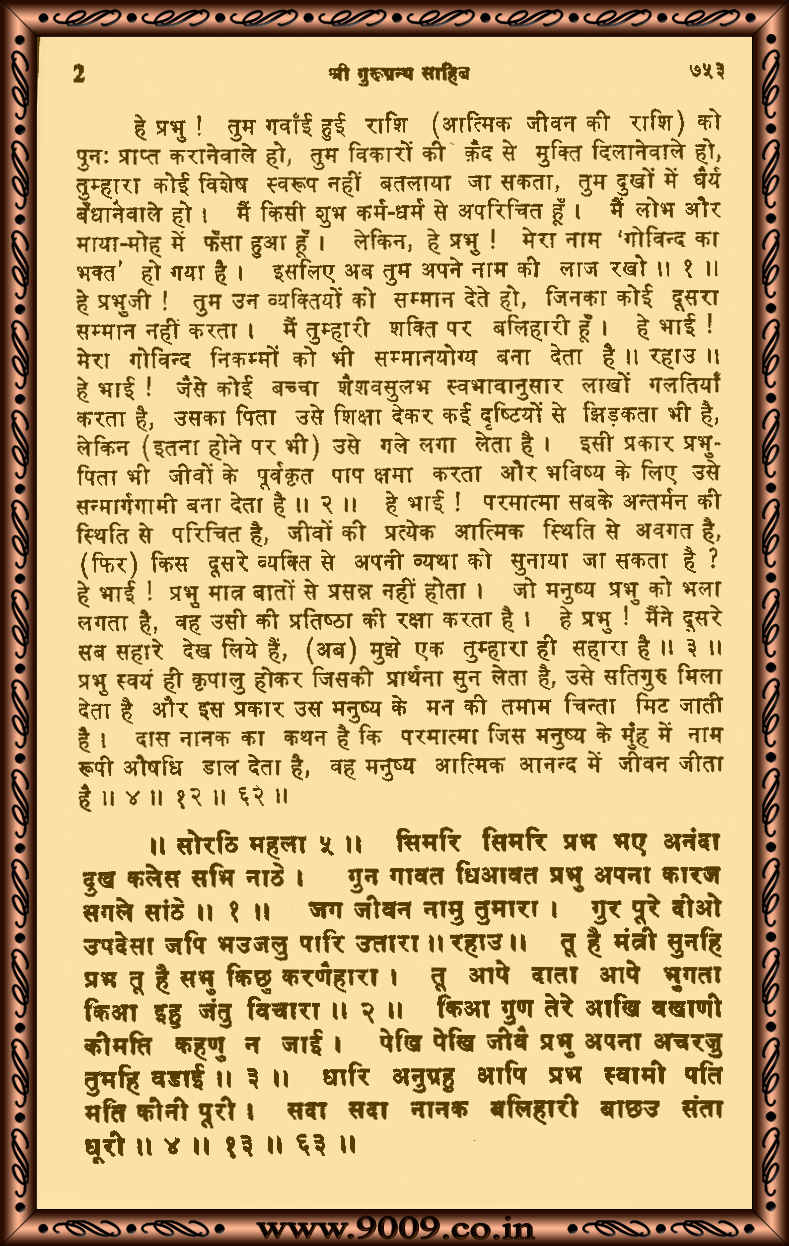 2 श्री गुरूग्रन्थ साहिब ७५३
हे प्रभु ! तुम गवाँई हुई राशि (आत्मिक जीवन की राशि) को
पुनः प्राप्त करानेवाले हो, तुम विकारों की क़ैद से मुक्ति दिलानेवाले हो,
तुम्हारा कोई विशेष स्वरूप नहीं बतलाया जा सकता, तुम दुखों में धैर्य
बँधानेवाले हो । मैं किसी शुभ कर्म-धर्म से अपरिचित हूँ । मैं लोभ और
माया-मोह में फँसा हुआ हूँ । लेकिन, हे प्रभु ! मेरा नाम ‘गोविन्द का
भक्त’ हो गया है । इसलिए अब तुम अपने नाम की लाज रखो ॥ १ ॥
हे प्रभुजी ! तुम उन व्यक्तियों को सम्मान देते हो, जिनका कोई दूसरा
सम्मान नहीं करता । मैं तुम्हारी शक्ति पर बलिहारी हूँ । हे भाई !
मेरा गोविन्द निकम्मों को भी सम्मानयोग्य बना देता है ॥ रहाउ ॥
हे भाई ! जैसे कोई बच्चा शैशवसुलभ स्वभावानुसार लाखों गलतियाँ
करता है, उसका पिता उसे शिक्षा देकर कई दृष्टियों से झिड़कता भी है,
लेकिन (इतना होने पर भी) उसे गले लगा लेता है । इसी प्रकार प्रभु-
पिता भी जीवों के पूर्वकृत पाप क्षमा करता और भविष्य के लिए उसे
सन्मार्गगामी बना देता है ॥ २ ॥ हे भाई ! परमात्मा सबके अन्तर्मन की
स्थिति से परिचित है, जीवों की प्रत्येक आत्मिक स्थिति से अवगत है,
(फिर) किस दूसरे व्यक्ति से अपनी व्यथा को सुनाया जा सकता है ?
हे भाई ! प्रभु मात्र बातों से प्रसन्न नहीं होता । जो मनुष्य प्रभु को भला
लगता है, वह उसी की प्रतिष्ठा की रक्षा करता है । हे प्रभु ! मैंने दूसरे
सब सहारे देख लिये हैं, (अब) मुझे एक तुम्हारा ही सहारा है ॥ ३ ॥
प्रभु स्वयं ही कृपालु होकर जिसकी प्रार्थना सुन लेता है, उसे सतिगुरु मिला
देता है और इस प्रकार उस मनुष्य के मन की तमाम चिन्ता मिट जाती
है । दास नानक का कथन है कि परमात्मा जिस मनुष्य के मुँह में नाम
रूपी औषधि डाल देता है, वह मनुष्य आत्मिक आनन्द में जीवन जीता
है ॥ ४ ॥ १२ ॥ ६२ ॥
॥ सोरठि महला ५ ॥ सिमरि सिमरि प्रभ भए अनंदा
दुख कलेस सभि नाठे । गुन गावत धिआवत प्रभु अपना कारज
सगले सांठे ॥ १ ॥ जग जीवन नामु तुमारा । गुर पूरे दीओ
उपदेसा जपि भउजलु पारि उतारा ॥ रहाउ ॥ तू है मंत्री सुनहि
प्रभ तू है सभु किछु करणैहारा । तू आपे दाता आपे भुगता
किआ इहु जंतु विचारा ॥ २ ॥ किआ गुण तेरे आखि वखाणी
कीमति कहणु न जाई । पेखि पेखि जीवै प्रभु अपना अचरजु
तुमहि वडाई ॥ ३ ॥ धारि अनुग्रहु आपि प्रभ स्वामी पति
मति कीनी पूरी । सदा सदा नानक बलिहारी बाछउ संता
धूरी ॥ ४ ॥ १३ ॥ ६३ ॥
www.9009.co.in